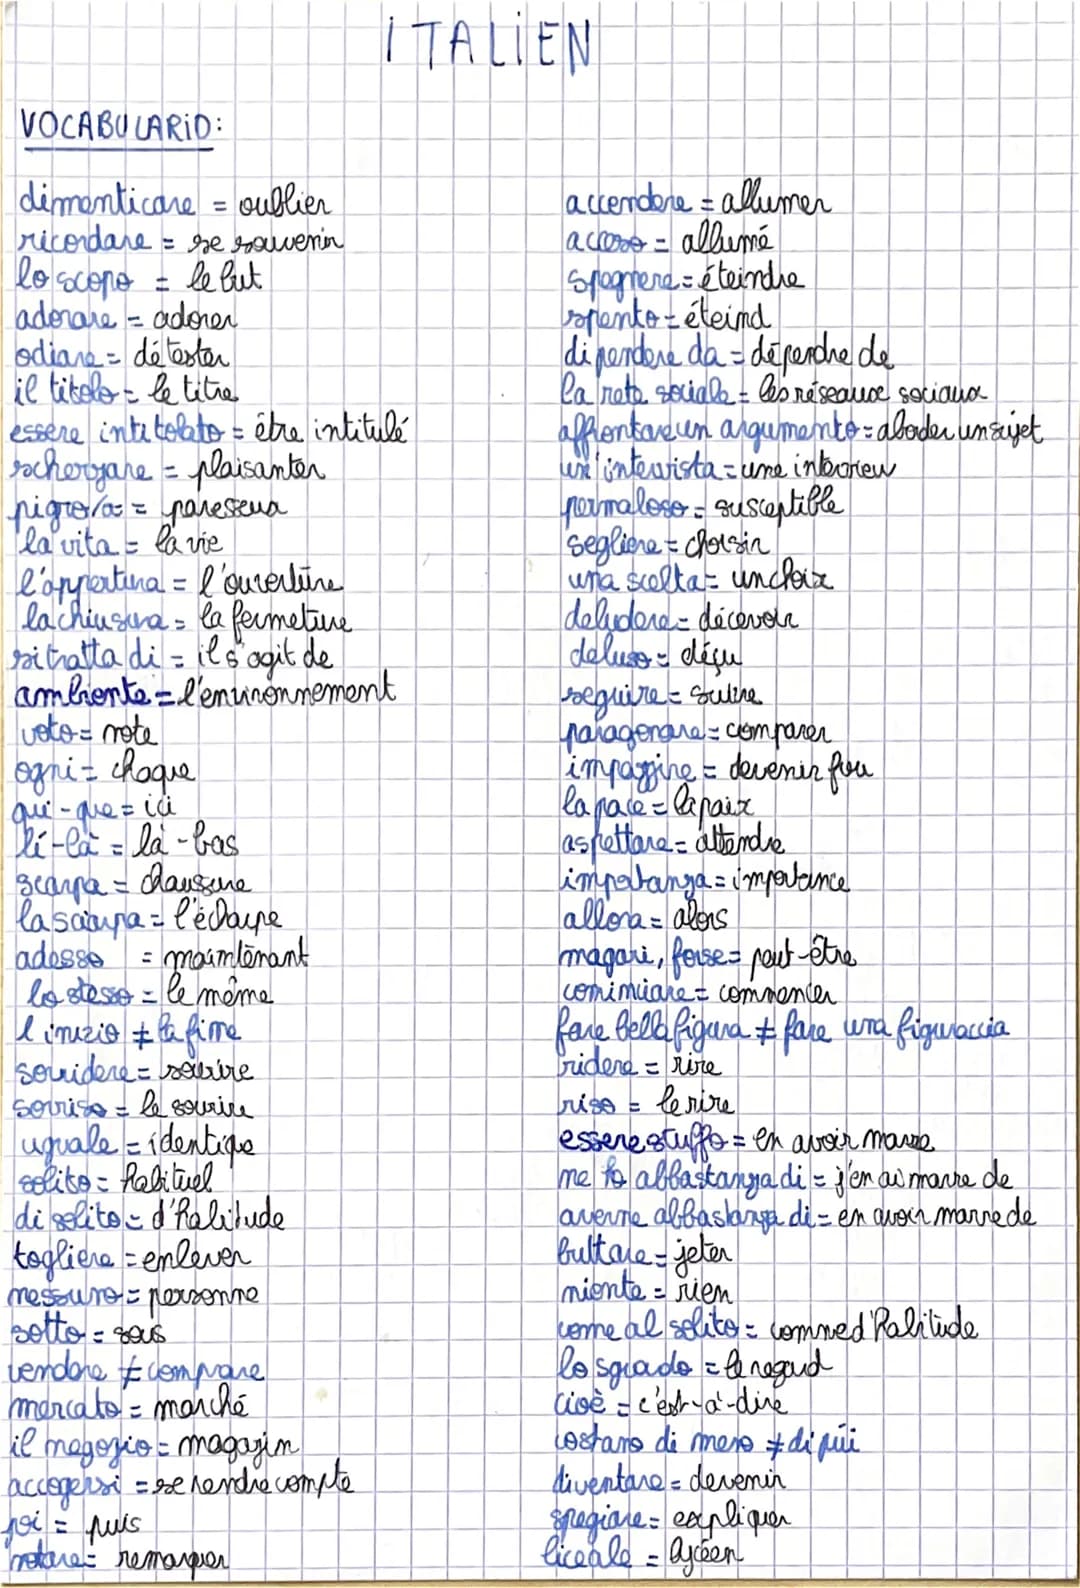 ITALIEN
VOCABULARIO:
dimenticare = oublier
ricordare = se souvenir
lo scopo = le but
adorare = adorer
odiare = détester
il titolo = le titre
essere intitolato = être intitulé
scherzare = plaisanter
pigro/a = paresseux
la vita = la vie
l'appertura = l'ouverture
la chiusura = la fermeture
si tratta di = il s'agit de
ambiente = l'environnement
voto = note
ogni = chaque
qui - que = ici
lí - là = là-bas
scarpa = chaussure
la sciarpa = l'écharpe
adesso = maintenant
lo stesso = le même
l'inizio ≠ la fine
sorridere = sourire
sorriso = le sourire
uguale = identique
solito = habituel
di solito = d'habitude
togliere = enlever
nessuno = personne
sotto = sous
vendere ≠ comprare
mercato = marché
il negozio = magazin
accogersi = se rendre compte
poi = puis
notare = remarquer
accendere = allumer
acceso = allumé
spegnere = éteindre
spento = éteind
dipendere da = dépendre de
la rete sociale = les réseaux sociaux
affrontare un argumento = aborder un sujet
un'intervista = une interview
permaloso = susceptible
segliere = choisir
una scelta = un choix
deludere = décevoir
deluso = déçu
seguire = suivre
paragonare = comparer
impazzire = devenir fou
la pace = la paix
aspettare = attendre
importanza = importance
allora = alors
magari, forse = peut-être
cominciare = commencer
fare bella figura ≠ fare una figuraccia
ridere = rire
riso = le rire
essere stuffo = en avoir marre
me fo abbastanza di = j'en ai marre de
averne abbastanza di = en avoir marre de
buttare = jeter
niente = rien
come al solito = comme d'habitude
lo sguado = le regard
cioè = c'est-à-dire
costano di meno ≠ di púi
diventare = devenir
spegiare = expliquer
liceale = lycéen